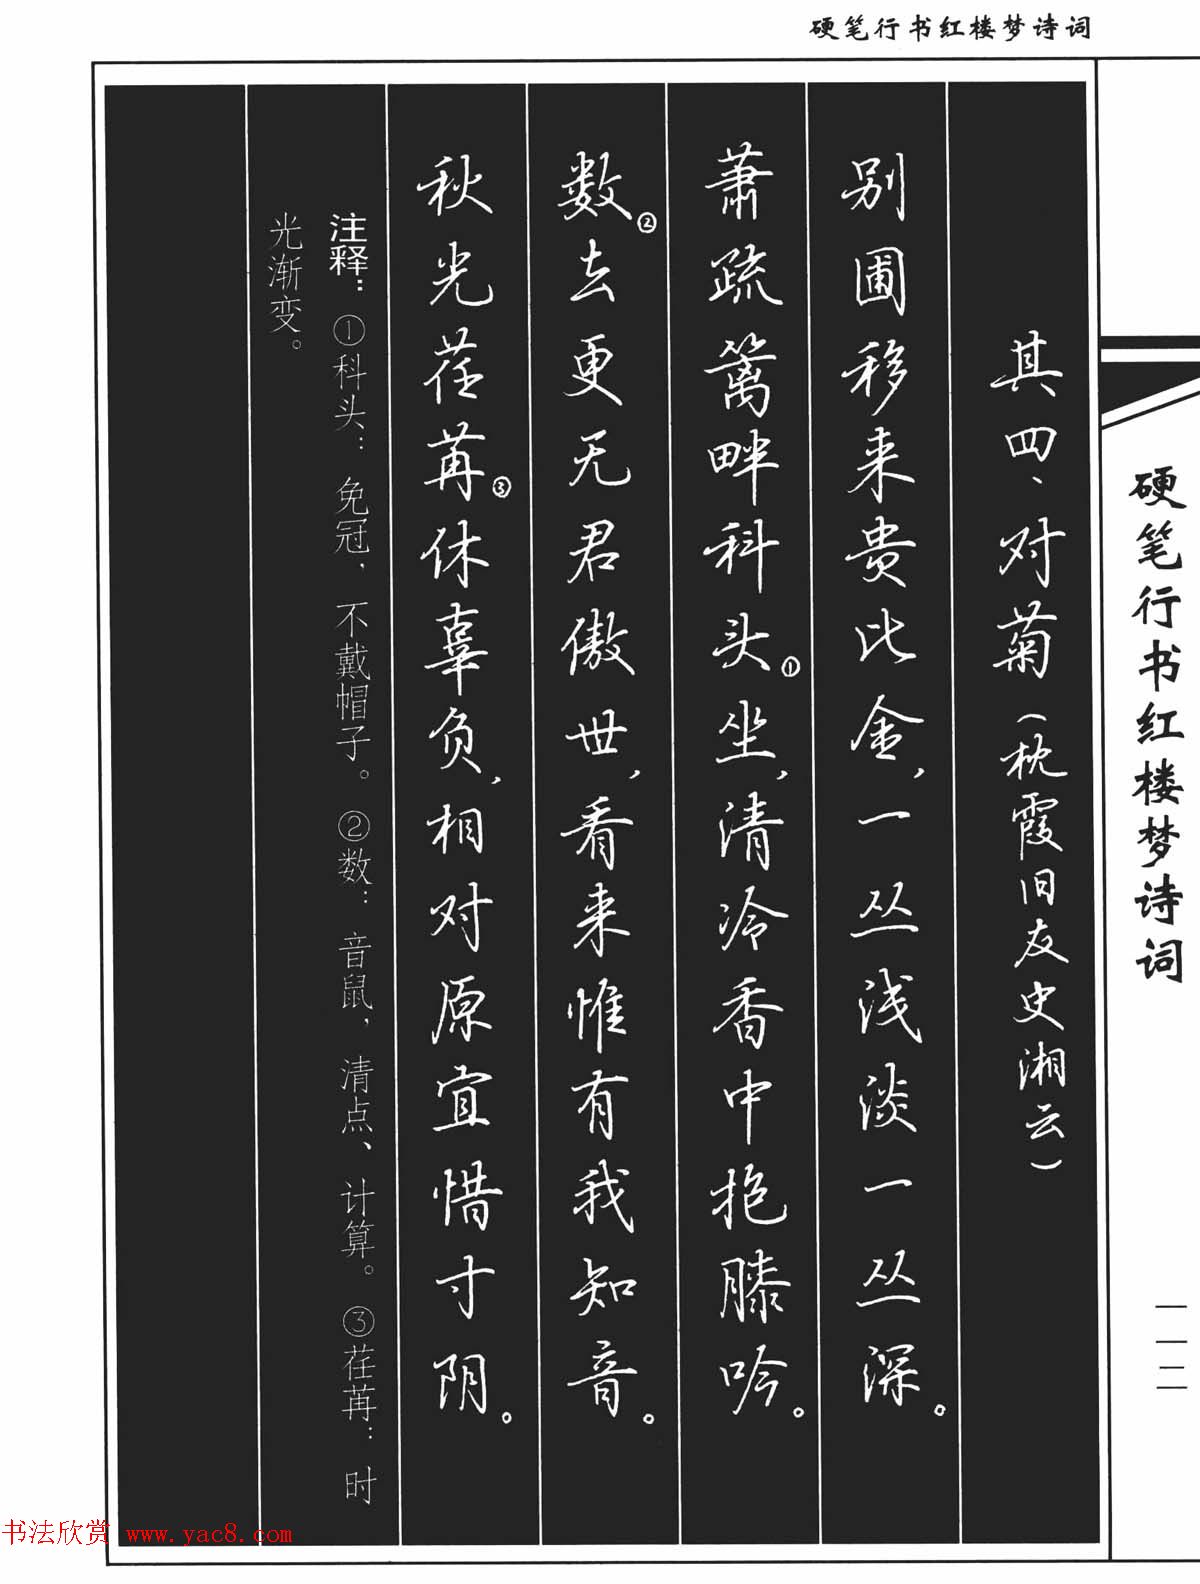 硬笔行书红楼梦诗词
硬笔行书红楼梦诗词
一一二
其四、对菊（枕霞旧友史湘云）
别圃移来贵比金，一丛浅淡一丛深。
萧疏篱畔科头①坐，清冷香中抱膝吟。
数②去更无君傲世，看来惟有我知音。
秋光荏苒③休辜负，相对原宜惜寸阴。
注释：①科头：免冠，不戴帽子。②数：音鼠，清点、计算。③荏苒：时
光渐变。
书法欣赏 www.yac8.com